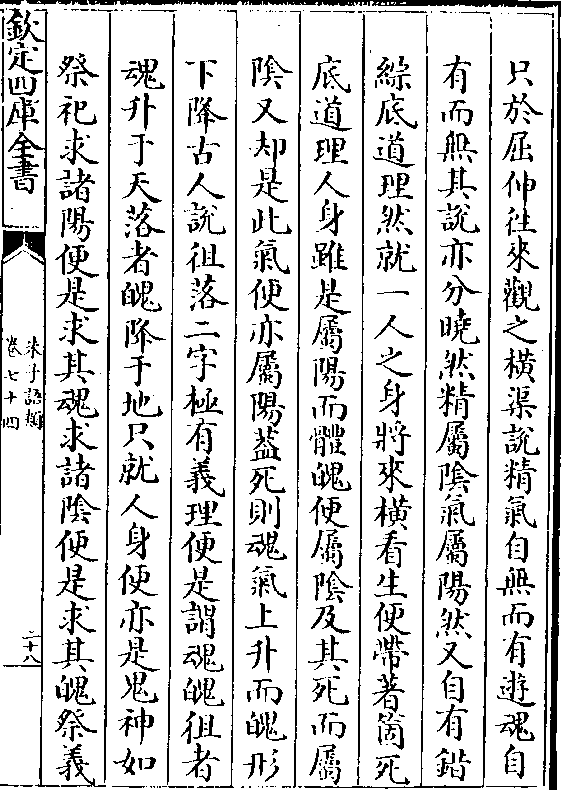 只於屈伸往來觀之横渠說精氣自無而有遊魂自
有而無其說亦分曉然精屬陰氣屬陽然又自有錯
綜底道理然就一人之身將來横看生便帶著箇死
底道理人身雖是屬陽而體魄便屬陰及其死而屬
陰又却是此氣便亦屬陽葢死則魂氣上升而魄形
下降古人說徂落二字極有義理便是謂魂魄徂者
魂升于天落者魄降于地只就人身便亦是鬼神如
祭祀求諸陽便是求其魂求諸陰便是求其魄祭義
欽定四庫全書
朱子語類
卷七十四
二十八